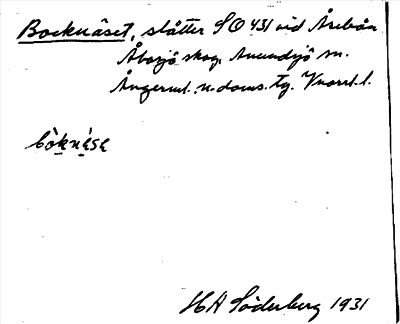 Bocknäset, slåtter SO 431 vid Åsebån
Åborjö skog, Anundsjö sn.
Ångerml. n. doms. tg. Vnorrl. l.
bòknésε
HA Söderberg 1931